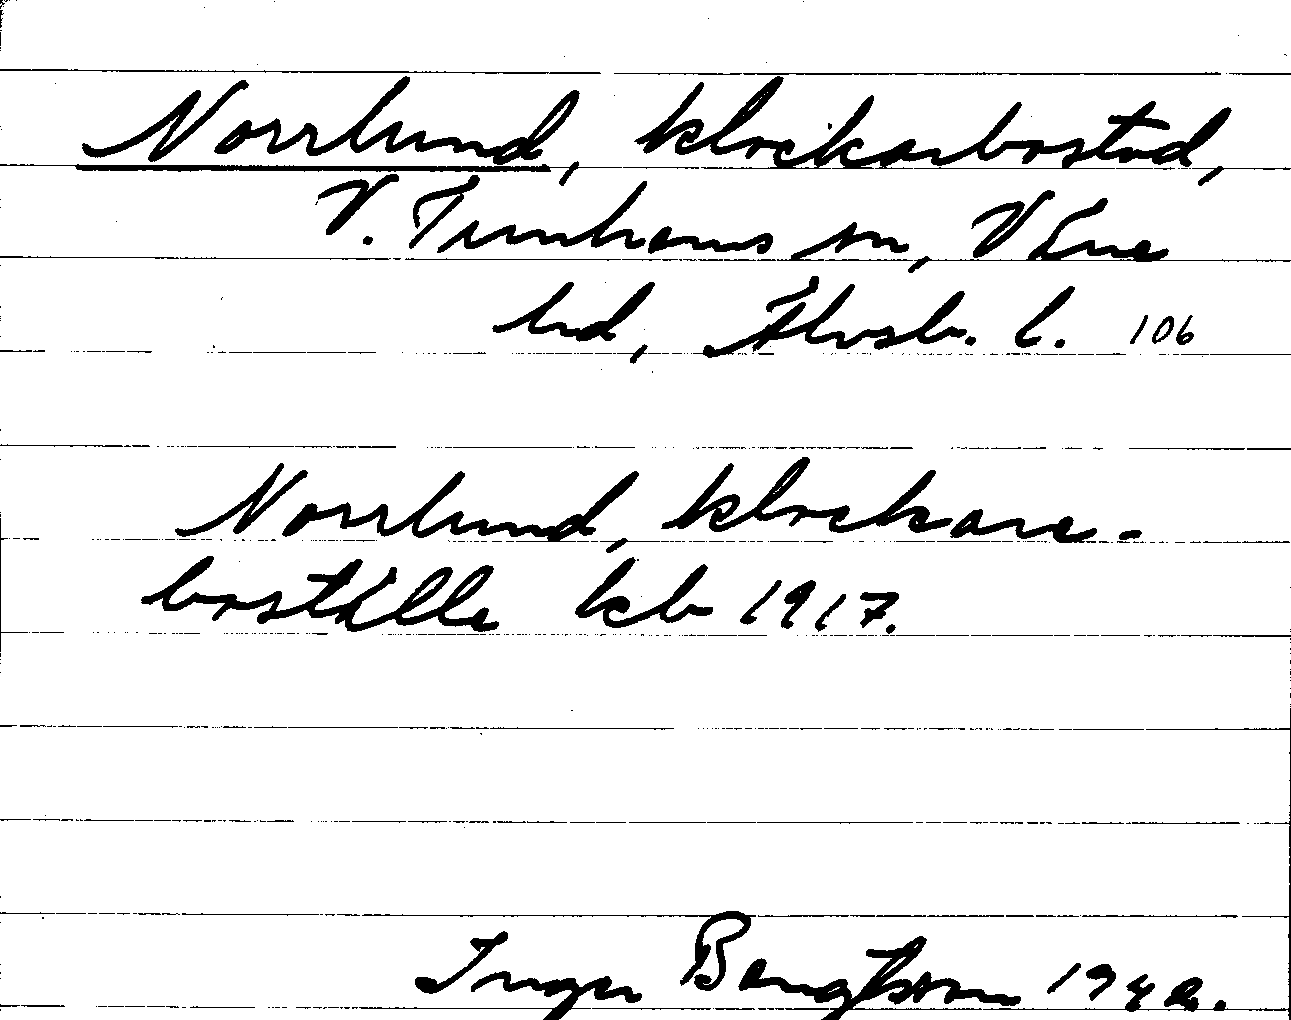 Norrlund, klockarbostad,
V. Tunhems sn, Väne
hd, Älvsb. l. 106
Norrlund, klockare-
boställe kb 1917.
Inger Bengtsson 1942.